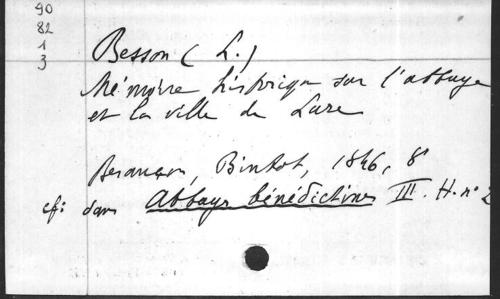 90
82
1
3
Besson (L.)
Mémoire historique sur l'abbaye
et la ville de Lure
Besançon, Bintot, 1846, 8°
cf: dans Abbayes bénédictines III. H. n° 2